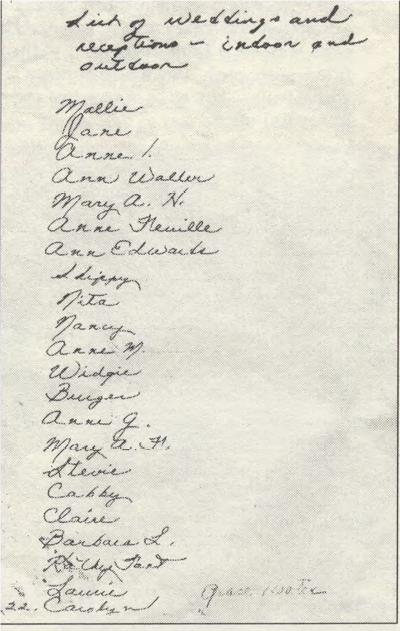 List of weddings and
receptions - indoor and
outdoor
Mollie
Jane
Anne I.
Ann Waller
Mary A. H.
Anne Neville
Ann Edwards
Skippy
Nita
Nancy
Anne M.
Widgie
Burger
Anne G.
Mary A. F.
Stevie
Cabby
Claire
Barbara L.
Kathy
Laurie Grace
22. Carolyn